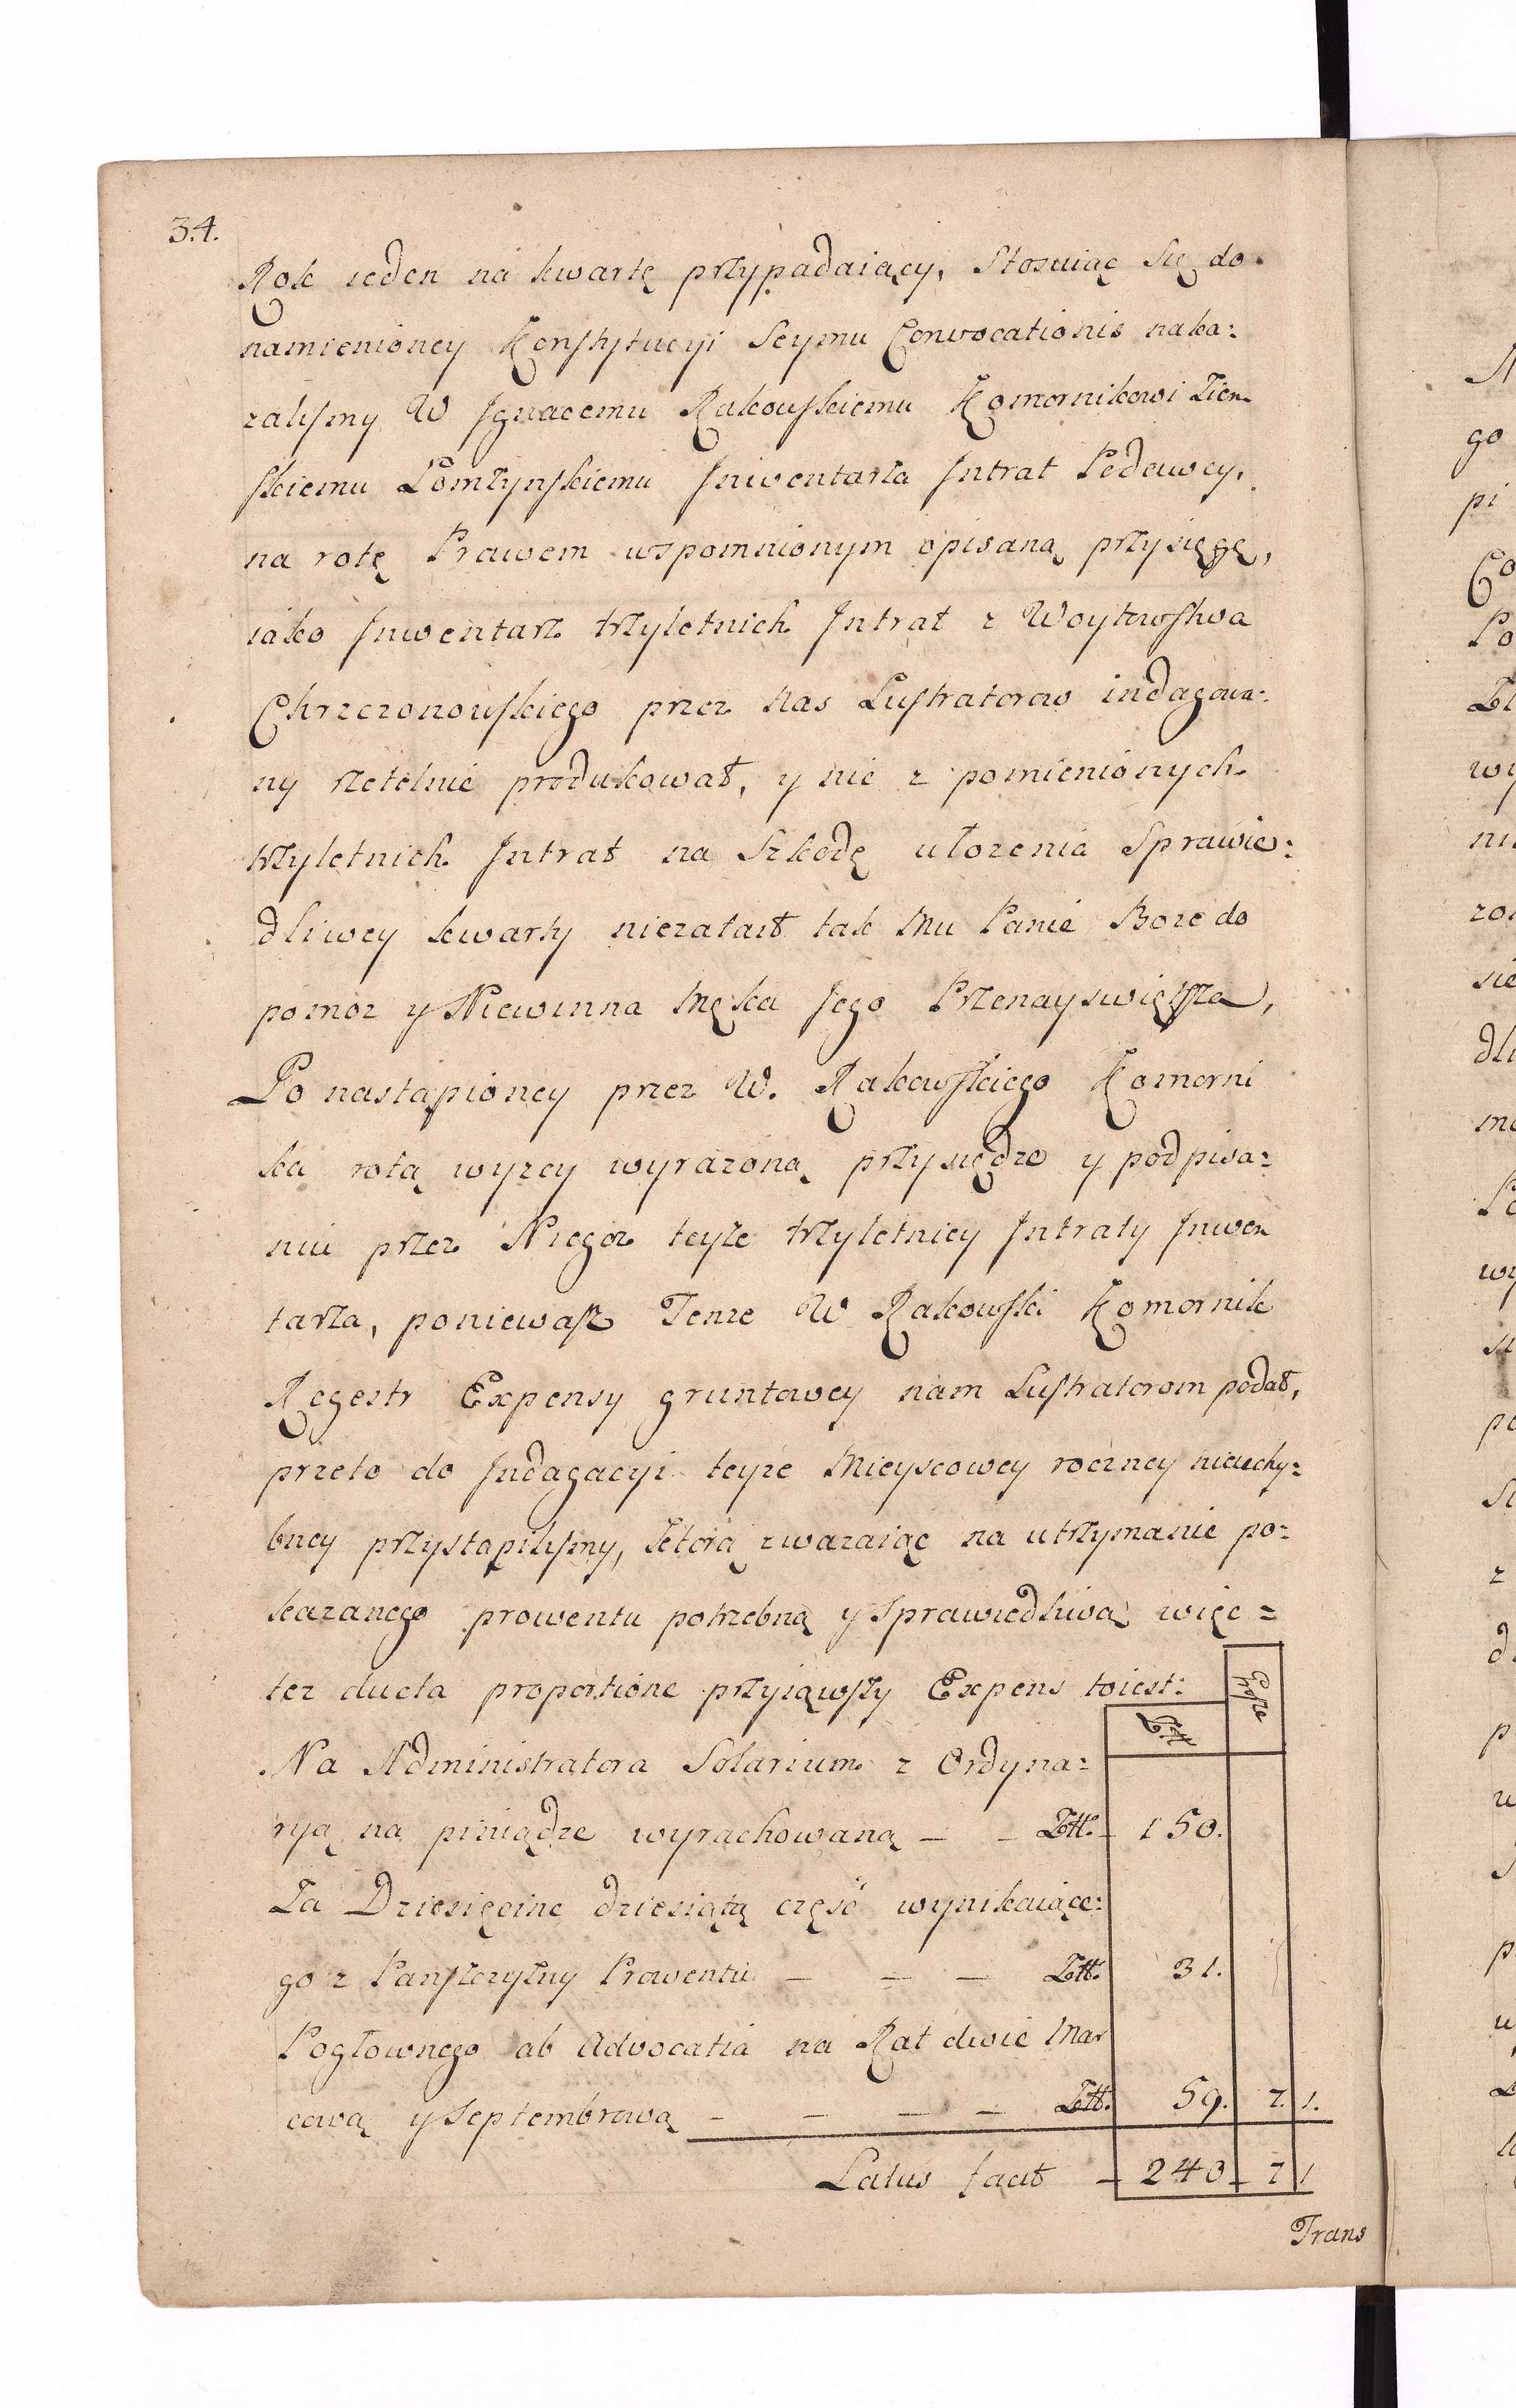 34.
Rok ieden na kwartę przypadaiący, Stosuiąc Się do
namienioney Konstytucyi Seymu Convocationis naka:
zalismy W Jgnacemu Rakowskiemu Komornikowi Ziem
skiemu Łomżynskiemu Jnwentarza Jntrat Podawcy,
na rotę Prawem wspomnionym opisaną przysięgę,
iako Jnwentarz trzyletnich Jntrat z Woytowstwa
Chrzczonowskiego przez nas Lustratorow indagowa:
ny rzetelnie produkował, y nic z pomienionych
trzyletnich Jntrat na Szkodę ułozenia Sprawie:
dliwey kwarty niezataił tak Mu Panie Boze do
pomoz y Niewinna Męka Jego Przenayswiętsza,
Po nastąpioney przez W. Rakowskiego Komorni
ka rotą wyzey wyrazoną przysiędze y podpisa:
niu przez Niegoz teyże trzyletniey Jntraty Jnwen
tarza, poniewasz Tenze W Rakowski Komornik
Regestr Expensy gruntowey nam Lustratorom podał,
przeto do Jndagacyi teyze Mieyscowey roczney nieuchy:
bney przystąpilismy, ktorą zwazaiąc na utrzymanie po:
kazanego prowentu potrzebną y Sprawiedliwą więc =
tez ducta proportione przyiąwszy Expens toiest:
Złł Grosze
Na Administratora Solarium z Ordyna:
ryą na piniądze wyrachowaną – – Złł. 150.
Za Dziesięcine dziesiątą część wynikaiące:
go z Panszczyzny Prowentu – – – Złł. 31.
Pogłownego ab Advocatia na Rat dwie Mar
cową y Septembrową – – – – Złł. 59. 7. 1.
Latus facit – 240 – 7 1
Trans